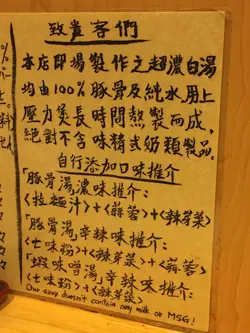 致貴客們
本店即場製作之超濃白湯
均由100%豚骨及純水,用上
壓力煲長時間熬製而成,
絕對不含味精或奶類製品。
自行添加口味推介
「豚骨湯,濃味推介:
<拉麵汁>+<蒜蓉>+<辣芽菜>
「豚骨湯,辛辣味推介:
<七味粉>+<辣芽菜>+<蒜蓉>
「蝦味噌湯,辛辣味推介:
<七味粉>+<辣芽菜>
Our soup doesn't contain any milk or MSG!